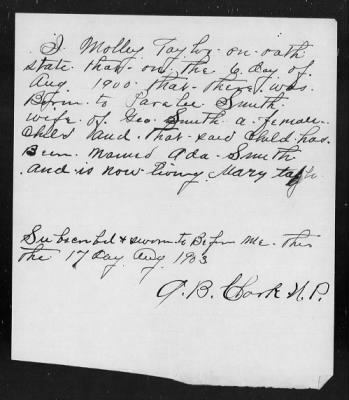 I Molley Taylor on oath
state that on the 6 day of
Aug 1900 that there was
Born to Saralee Smith
wife of Geo Smith a female
child and that said child has
Been named Ada Smith
and is now living Mary
Subscribed & sworn to Before me this
the 17 day Aug 1903
A. B. Clark N.P.